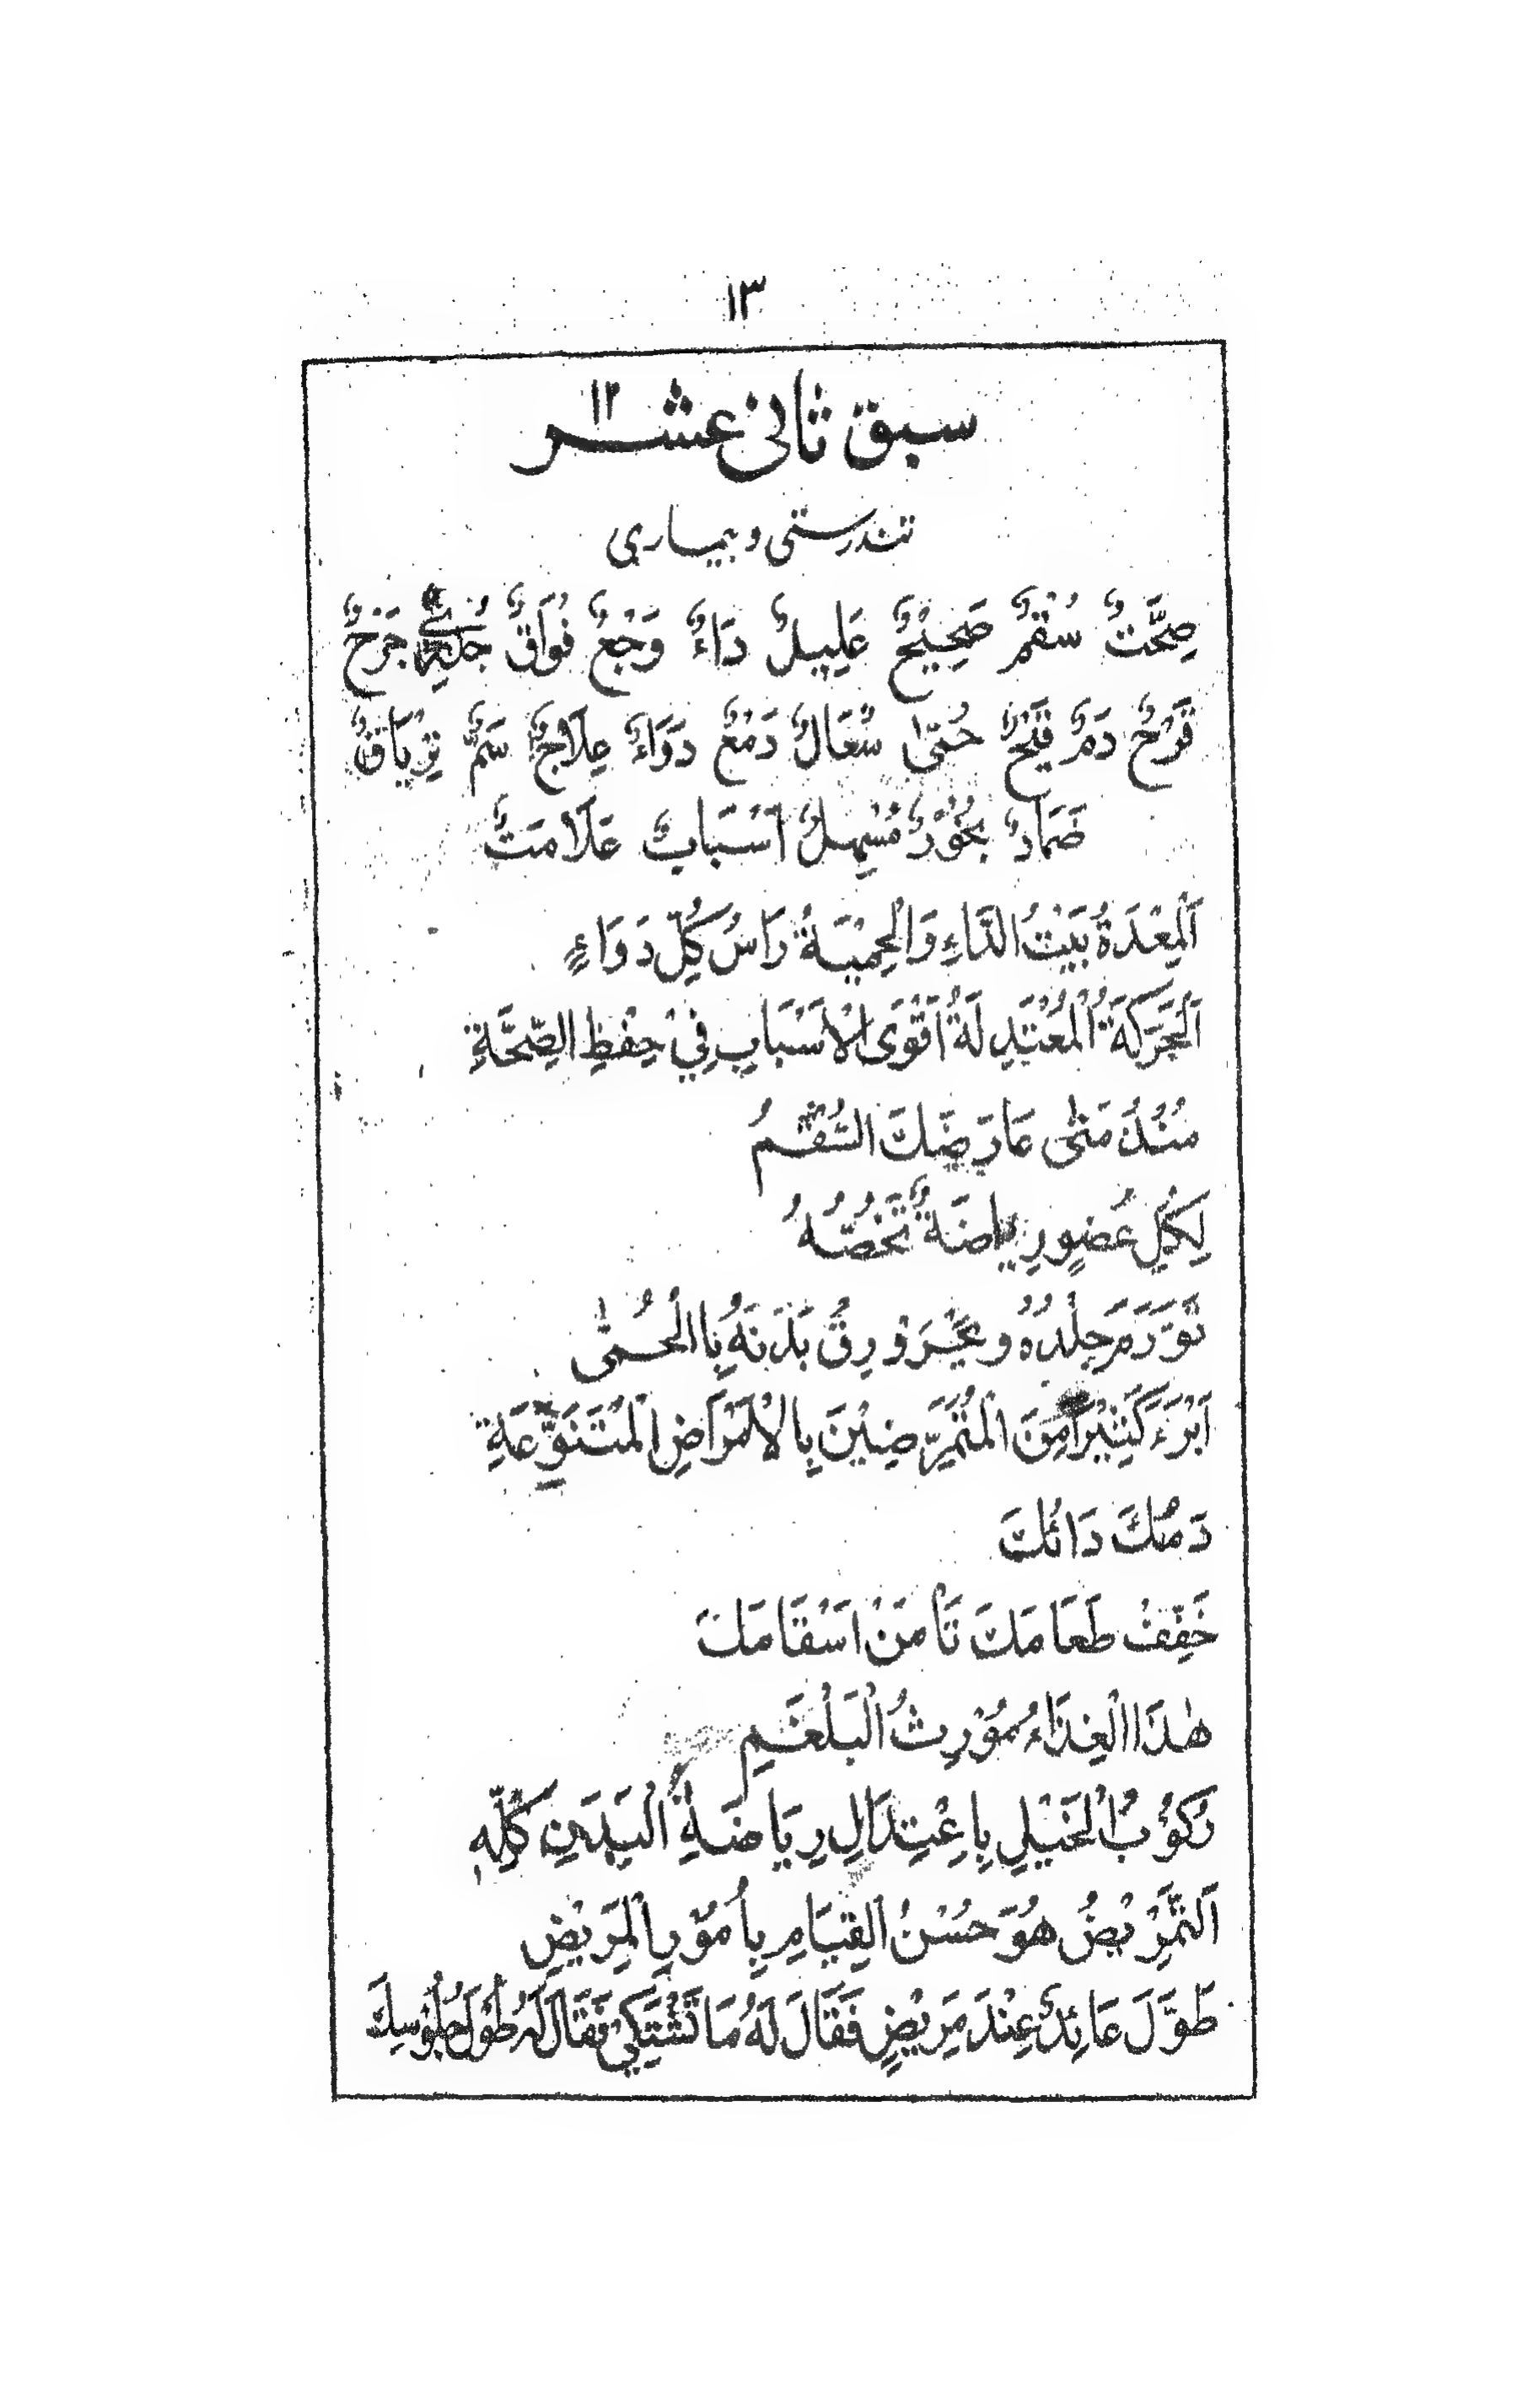 ۱۳
سبق ثانی عشر ۱۲
تندرستی و بیماری
صِحَّتٌ سُقْمٌ صَحِیْحٌ عَلِیْلٌ دَاءٌ وَجْعٌ فُوَاقٌ جَرْحٌ
قَرْحٌ دَمٌ قَیْحٌ حُمّٰی سُعَالٌ دَمْعٌ دَوَاءٌ عِلَاجٌ سَمٌّ تِرْیَاقٌ
ضَمَادٌ بَخُوْرٌ مُسْهِلٌ اَسْبَابٌ عَلَامَتٌ
اَلْمِعْدَةُ بَیْتُ الدَّاءِ وَالْحِمْیَةُ رَاسُ کُلِّ دَوَاءٍ
اَلْحَرَکَةُ الْمُعْتَدِلَةُ اَقْوَی الْاَسْبَابِ فِیْ حِفْظِ الصِّحَّةِ
مُنْذُ مَتٰی عَارَضَكَ السُّقْمُ
لِکُلِّ عُضْوٍ رِیَاضَةٌ تَخُصُّهُ
تَوَرَّمَ جِلْدُهُ وَ بَدَنَهُ بِالْحُمّٰی
اَبْرَءَ کَثِیْرًا مِنَ الْمُتَمَرِّضِیْنَ بِالْاَمْرَاضِ الْمُتَنَوِّعَةِ
دَمُكَ دَائُكَ
خَفِّفْ طَعَامَكَ تَأْمَنْ اَسْقَامَكَ
هٰذَا الْغِذَاءُ مُوْرِثُ الْبَلْغَمِ
رُکُوْبُ الْخَیْلِ بِاعْتِدَالٍ رِیَاضَةُ الْبَدَنِ کُلِّهٖ
اَلتَّمْرِیْضُ هُوَ حُسْنُ الْقِیَامِ بِاُمُوْرِ الْمَرِیْضِ
طَوَّلَ عَائِدٌ عِنْدَ مَرِیْضٍ فَقَالَ لَهُ مَا تَشْتَکِیْ فَقَالَ لَهُ طُوْلَ جُلُوْسِكَ